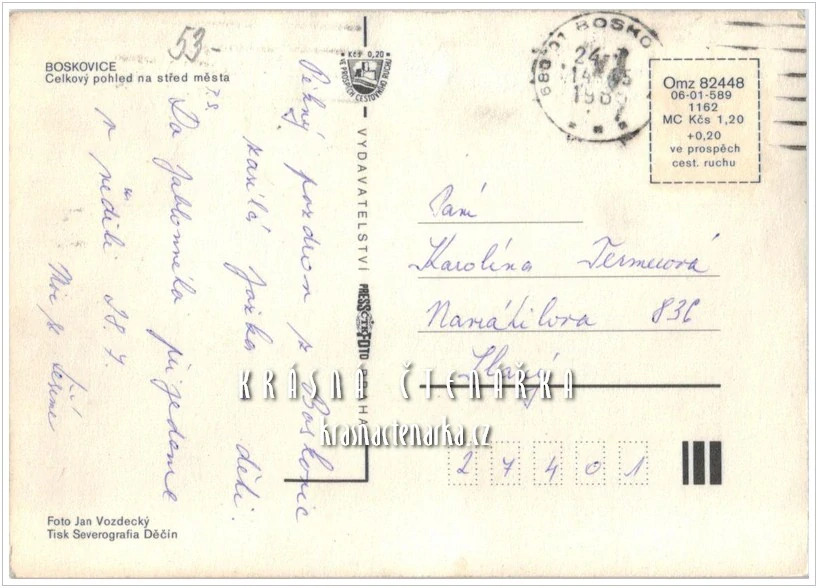 53-
BOSKOVICE
Celkový pohled na střed města
Pěkný pozdrav z Boskovic
Jarka děti.
P.S.
Do Jablonného přijedeme
v neděli 28. 7.
Moc se těšíme
Foto Jan Vozdecký
Tisk Severografia Děčín
Kčs 0,20
VE PROSPĚCH CESTOVNÍHO RUCHU
VYDAVATELSTVÍ PRESSFOTO PRAHA
ČTK
680 01 BOSKO
24
-14
198
Omz 82448
06-01-589
1162
MC Kčs 1,20
+0,20
ve prospěch
cest. ruchu
Paní
Karolína
836
Slaný
27401
KRÁSNÁ ČTENÁŘKA
krasnactenarka.cz